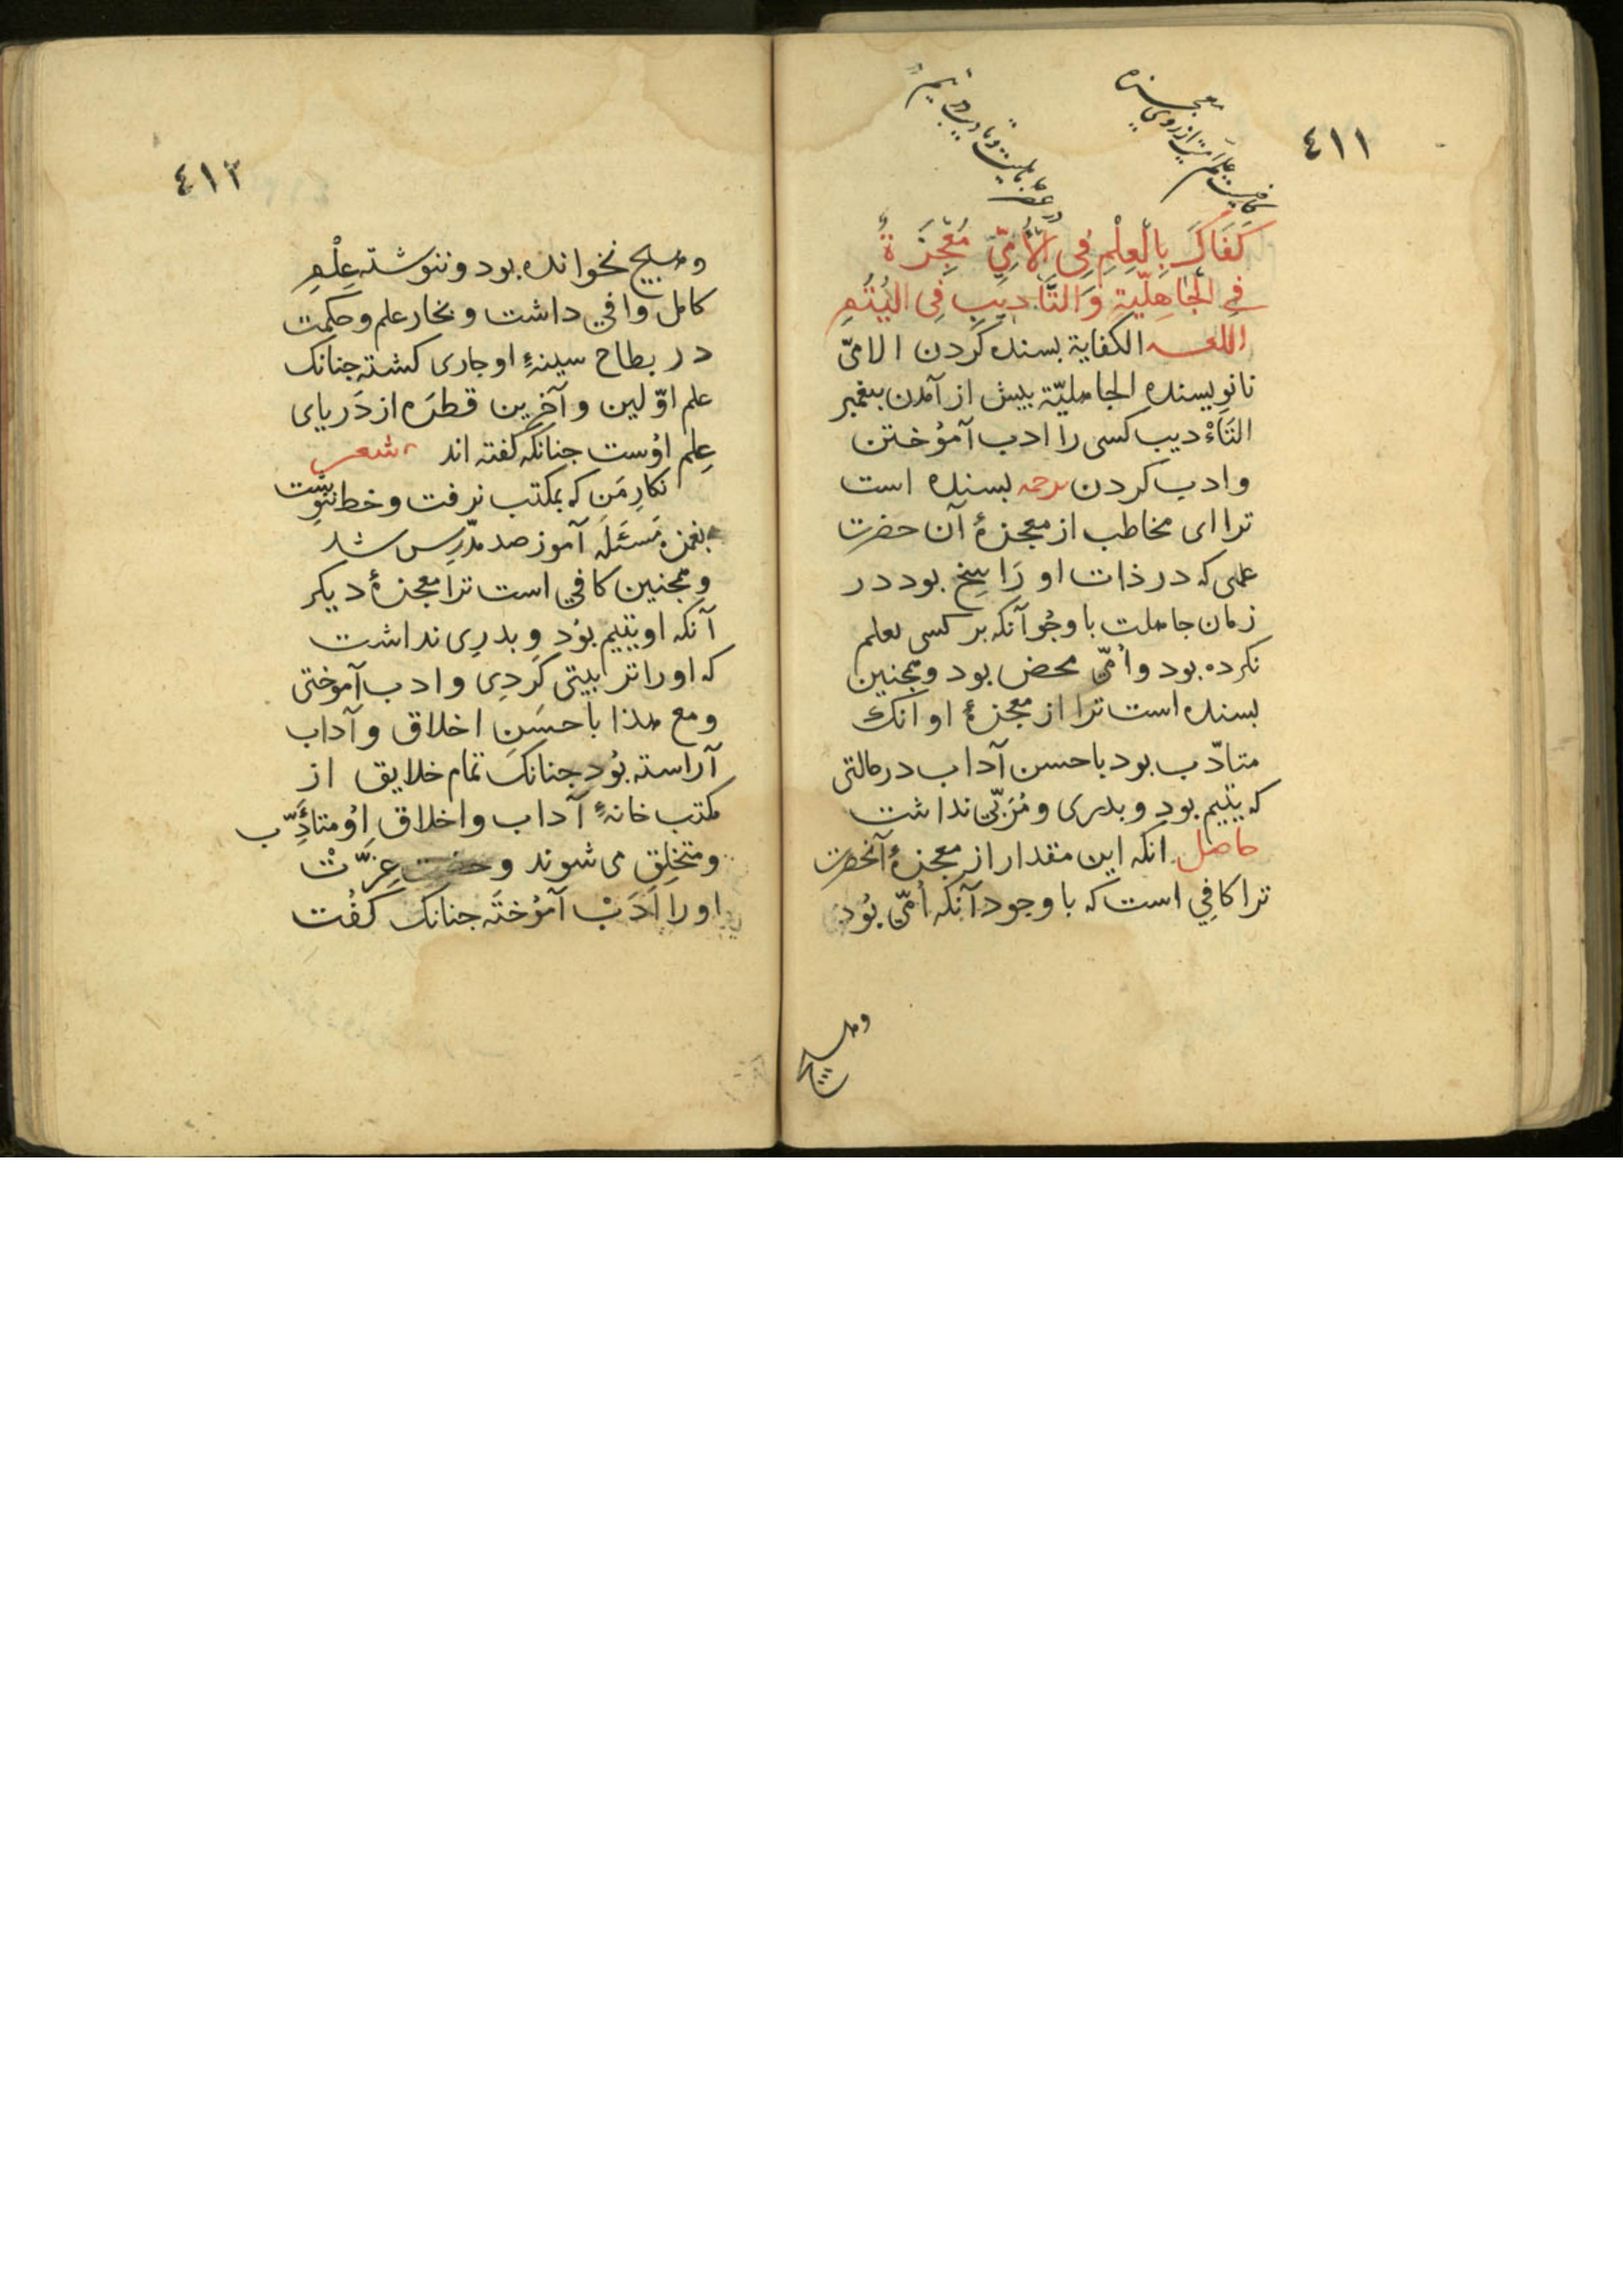 ٤١١
كافيست علم امّيت از روى معجزه
در عصر جاهليت و تاديب در يتيم
كَفَاكَ بِالْعِلْمِ فِى الْأُمِّيِّ مُعْجِزَةً
فِي الْجَاهِلِيَّةِ وَالتَّأْدِيبِ فِى الْيُتُمِ
اللغــه الكفاية بسنده كردن الامىّ
نانويسنده الجاهليّة بيش از آمدن بيغمبر
التَاْديب كسى را ادب آمۇختن
وادب كردن ترجمه بسنده است
ترا اى مخاطب از معجزهٔ آن حضرت
علمى كه در ذات او رَاسِخ بود در
زمان جاهلت با وجُو آنكه بر كسى تعلم
نكرده بود و اُمّى محض بود و همجنين
بسنده است ترا از معجزهٔ او آنك
متادّب بود باحسن آداب در حالتى
كه يتيم بود و بدرى و مُرَبّى نداشت
حاصل انكه اين مقدار از معجزهٔ آنحضرت
ترا كافِى است كه با وجود آنكه اُمّى بُود
وهيج
٤١٣
وهيج نخوانده بود و ننوشته عِلْمِ
كامل وافي داشت و بخار علم و حكمت
در بطاح سينهٔ او جارى كشته جنانك
علم اوّلين و آخرين قطرَه از دَرياى
عِلم اوُست جنانكه كفته اند شعر
نكارِ مَن كه بمكتب نرفت و خط ننوِشت
بغمزه مَسئَله آموز صد مدّرِس شد
و همجنين كافي است ترا معجزهٔ ديكر
آنكه او يتيم بوُد و بدرِى نداشت
كه او را تربيتى كَردِى و ادب آموختى
ومع هذا باحسَنِ اخلاق و آداب
آراسته بوُد جنانكَ تمام خلايق از
مكتب خانهٔ آداب و اخلاق اوُ متأدِّب
و متخلِق مى شوند و حضرت عِزّتْ
او را اَدَبْ آموُختَه جنانك كفُت